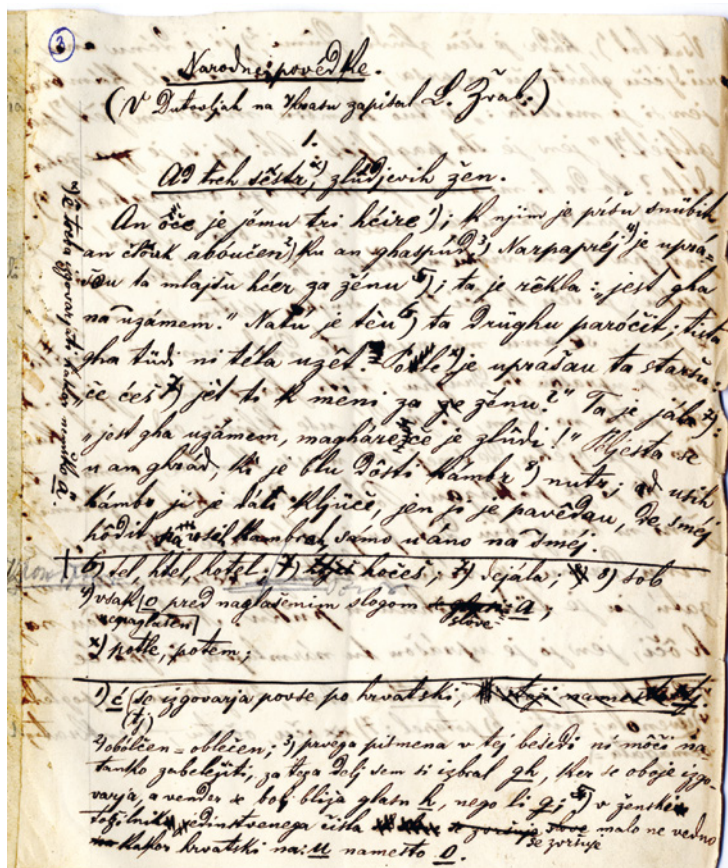 2
Narodne povédke.
(V Dutovljah na Krasu zapisal L. Žvab.)
1.
Ad treh sěstr, x) zlúdjevih žen.
An óče je jěmu tri hćire 1); k njim je pŕšu snúbit
an člouk aboúčen 2) ku an ghaspúd. 3) Narpapréj 4) je uprá-
šou ta mlajšu hćer za žénu 5); ta je rěkla: „jest gha
na uzámem." Natú je tèu 6) ta drúghu paróčit; tista
gha túdi ni téla uzét. Potle x) je uprášau ta staršu:
„če ćeš 7) jět ti k měni za ženu?" Ta je jála 7):
„jost gha uzámem, magháre če je zlúdi!" Pejésta se
u an ghrad, ki je blu dósti kámbr 8) nutr; ad usih
kámbr ji je dáu ključe, jen ji je pavědau, de směj
hódit pa vsih kambrah, sámo u áno na směj.
6) tel, htel, hotel; 7) hočeš; 7) dejála; 8) sob
4) vsak o pred naglašenim slogom slove a;
nenaglašen
x) potle, potem;
1) ć (tj) se izgovarja povse po hrvatski;
2) obolčen = oblečen; 3) prvega pismena v tej besedi ni môči na-
tanko zabeležiti, za tega delj sem si izbral gh, ker se oboje izgo-
varja, a vender je bolj bliža glasu h, nego li g; 5) v ženskem
tožilniku edinstvenega čisla malo ne vedno
se zvršuje
kakor hrvatski na: u namesto o.